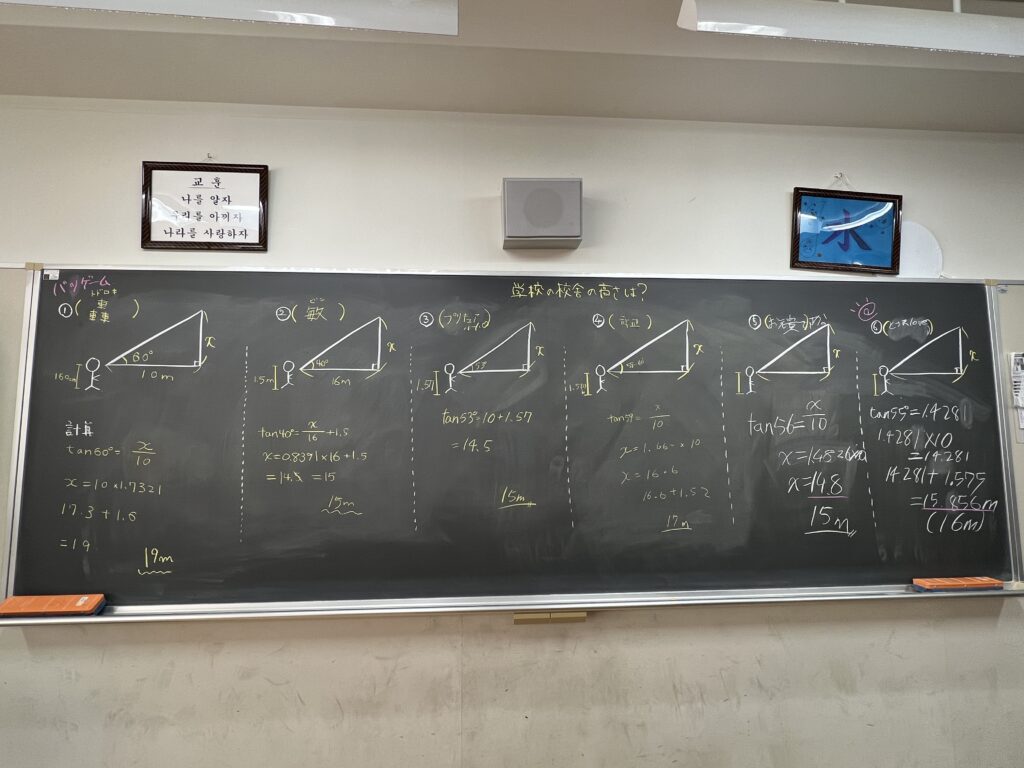 교 훈
나를 알자
우리를 아끼자
나라를 사랑하자
水
バツゲーム
学校の校舎の高さは?
①(
トドロキ
轟
)
60°
x
10m
160cm
計算
tan60° = x/10
x = 10×1.7321
17.3 + 1.6
= 19
19m
②(敏)
ビン
40°
x
16m
1.5m
tan40° = x/16 + 1.5
x = 0.8391×16 + 1.5
= 14.x = 15
15m
③(
53°
x
1.57
tan53° = 10 + 1.57
= 14.5
15m
④(
x
tan59 = x/10
x = 1.66 × 10
x = 16.6
16.6 + 1.52
17m
⑤(
x
tan56 = x/10
x = 14.8
15m
⑥(
x
tan55° = 1.4281
1.4281×10
= 14.281
14.281 + 1.575
= 15.856m
(16m)